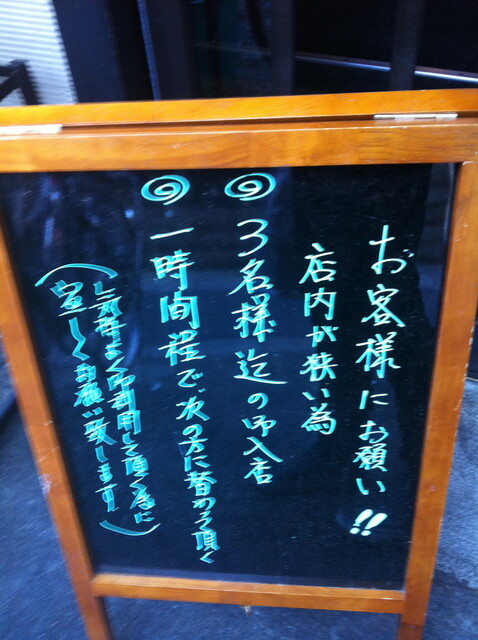 お客様にお願い!!
店内が狭い為
3名様迄の御入店
一時間程で次の方に替わって頂く
(気持よく御利用して頂く為に
宜しくお願い致します)